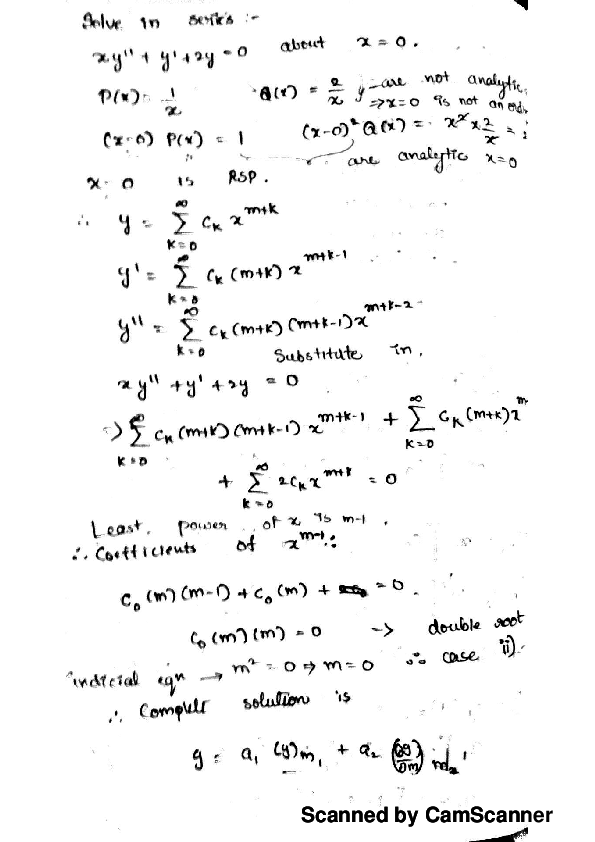 Solve in series :-
xy'' + y' + 2y = 0 about x = 0.
P(x) = 1/x Q(x) = 2/x } are not analytic.
⇒ x=0 is not an ord
(x-0) P(x) = 1 (x-0)² Q(x) = x² × 2/x =
are analytic x=0
x = 0 is RSP.
∴ y = ∑_{k=0}^{∞} c_k x^{m+k}
y' = ∑_{k=0}^{∞} c_k (m+k) x^{m+k-1}
y'' = ∑_{k=0}^{∞} c_k (m+k) (m+k-1) x^{m+k-2}
Substitute in,
xy'' + y' + 2y = 0
⇒ ∑_{k=0}^{∞} c_k (m+k) (m+k-1) x^{m+k-1} + ∑_{k=0}^{∞} c_k (m+k) x^{m
+ ∑_{k=0}^{∞} 2c_k x^{m+k} = 0
Least power of x is m-1.
∴ Coefficients of x^{m-1}:
c₀ (m) (m-1) + c₀ (m) + = 0.
c₀ (m) (m) = 0 → double root
indicial eqn → m² = 0 ⇒ m = 0 ∴ case ii).
∴ Complete solution is
y = a₁ (y)_{m₁} + a₂ (∂y/∂m)
Scanned by CamScanner